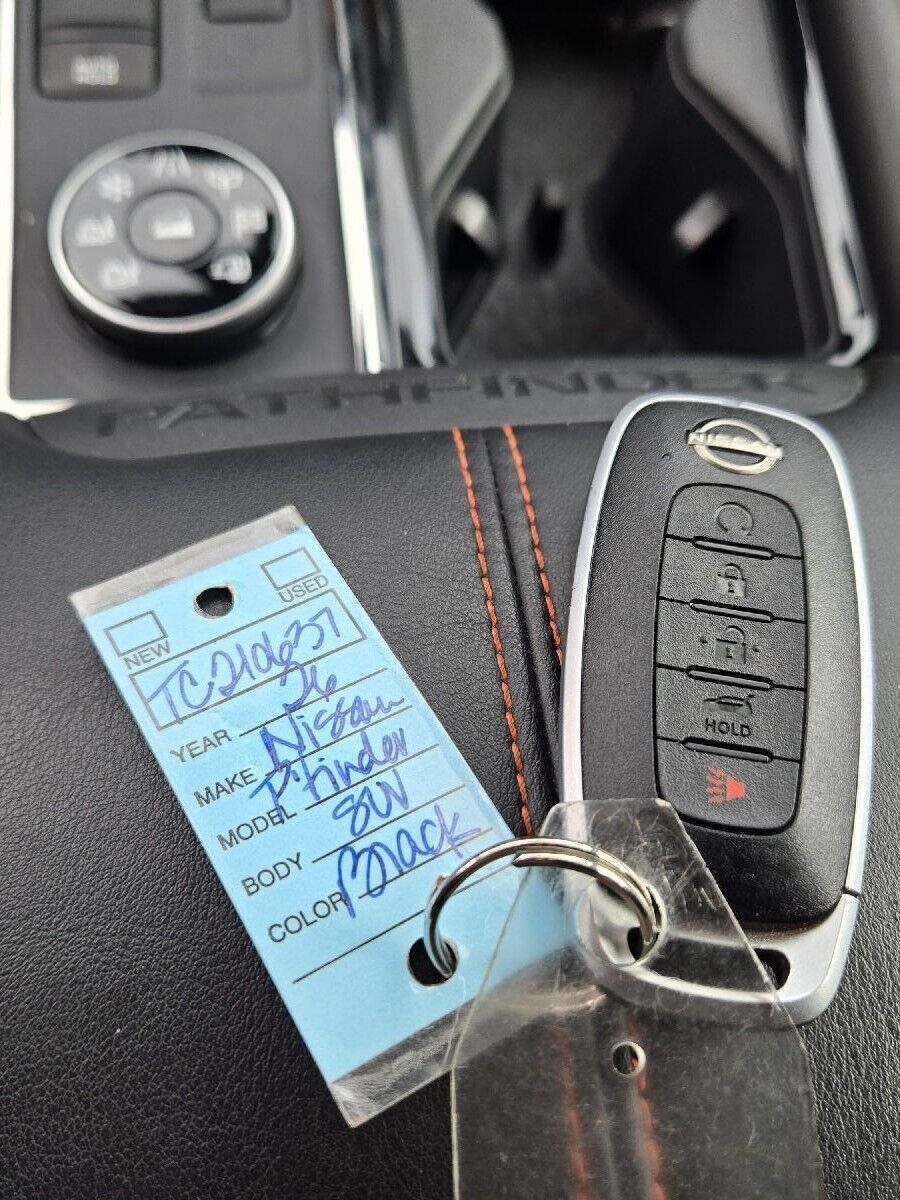 PATHFINDER
NISSAN
HOLD
NEW
USED
TC210637
YEAR 26
MAKE Nissan
MODEL P'finder
BODY SUV
COLOR Black